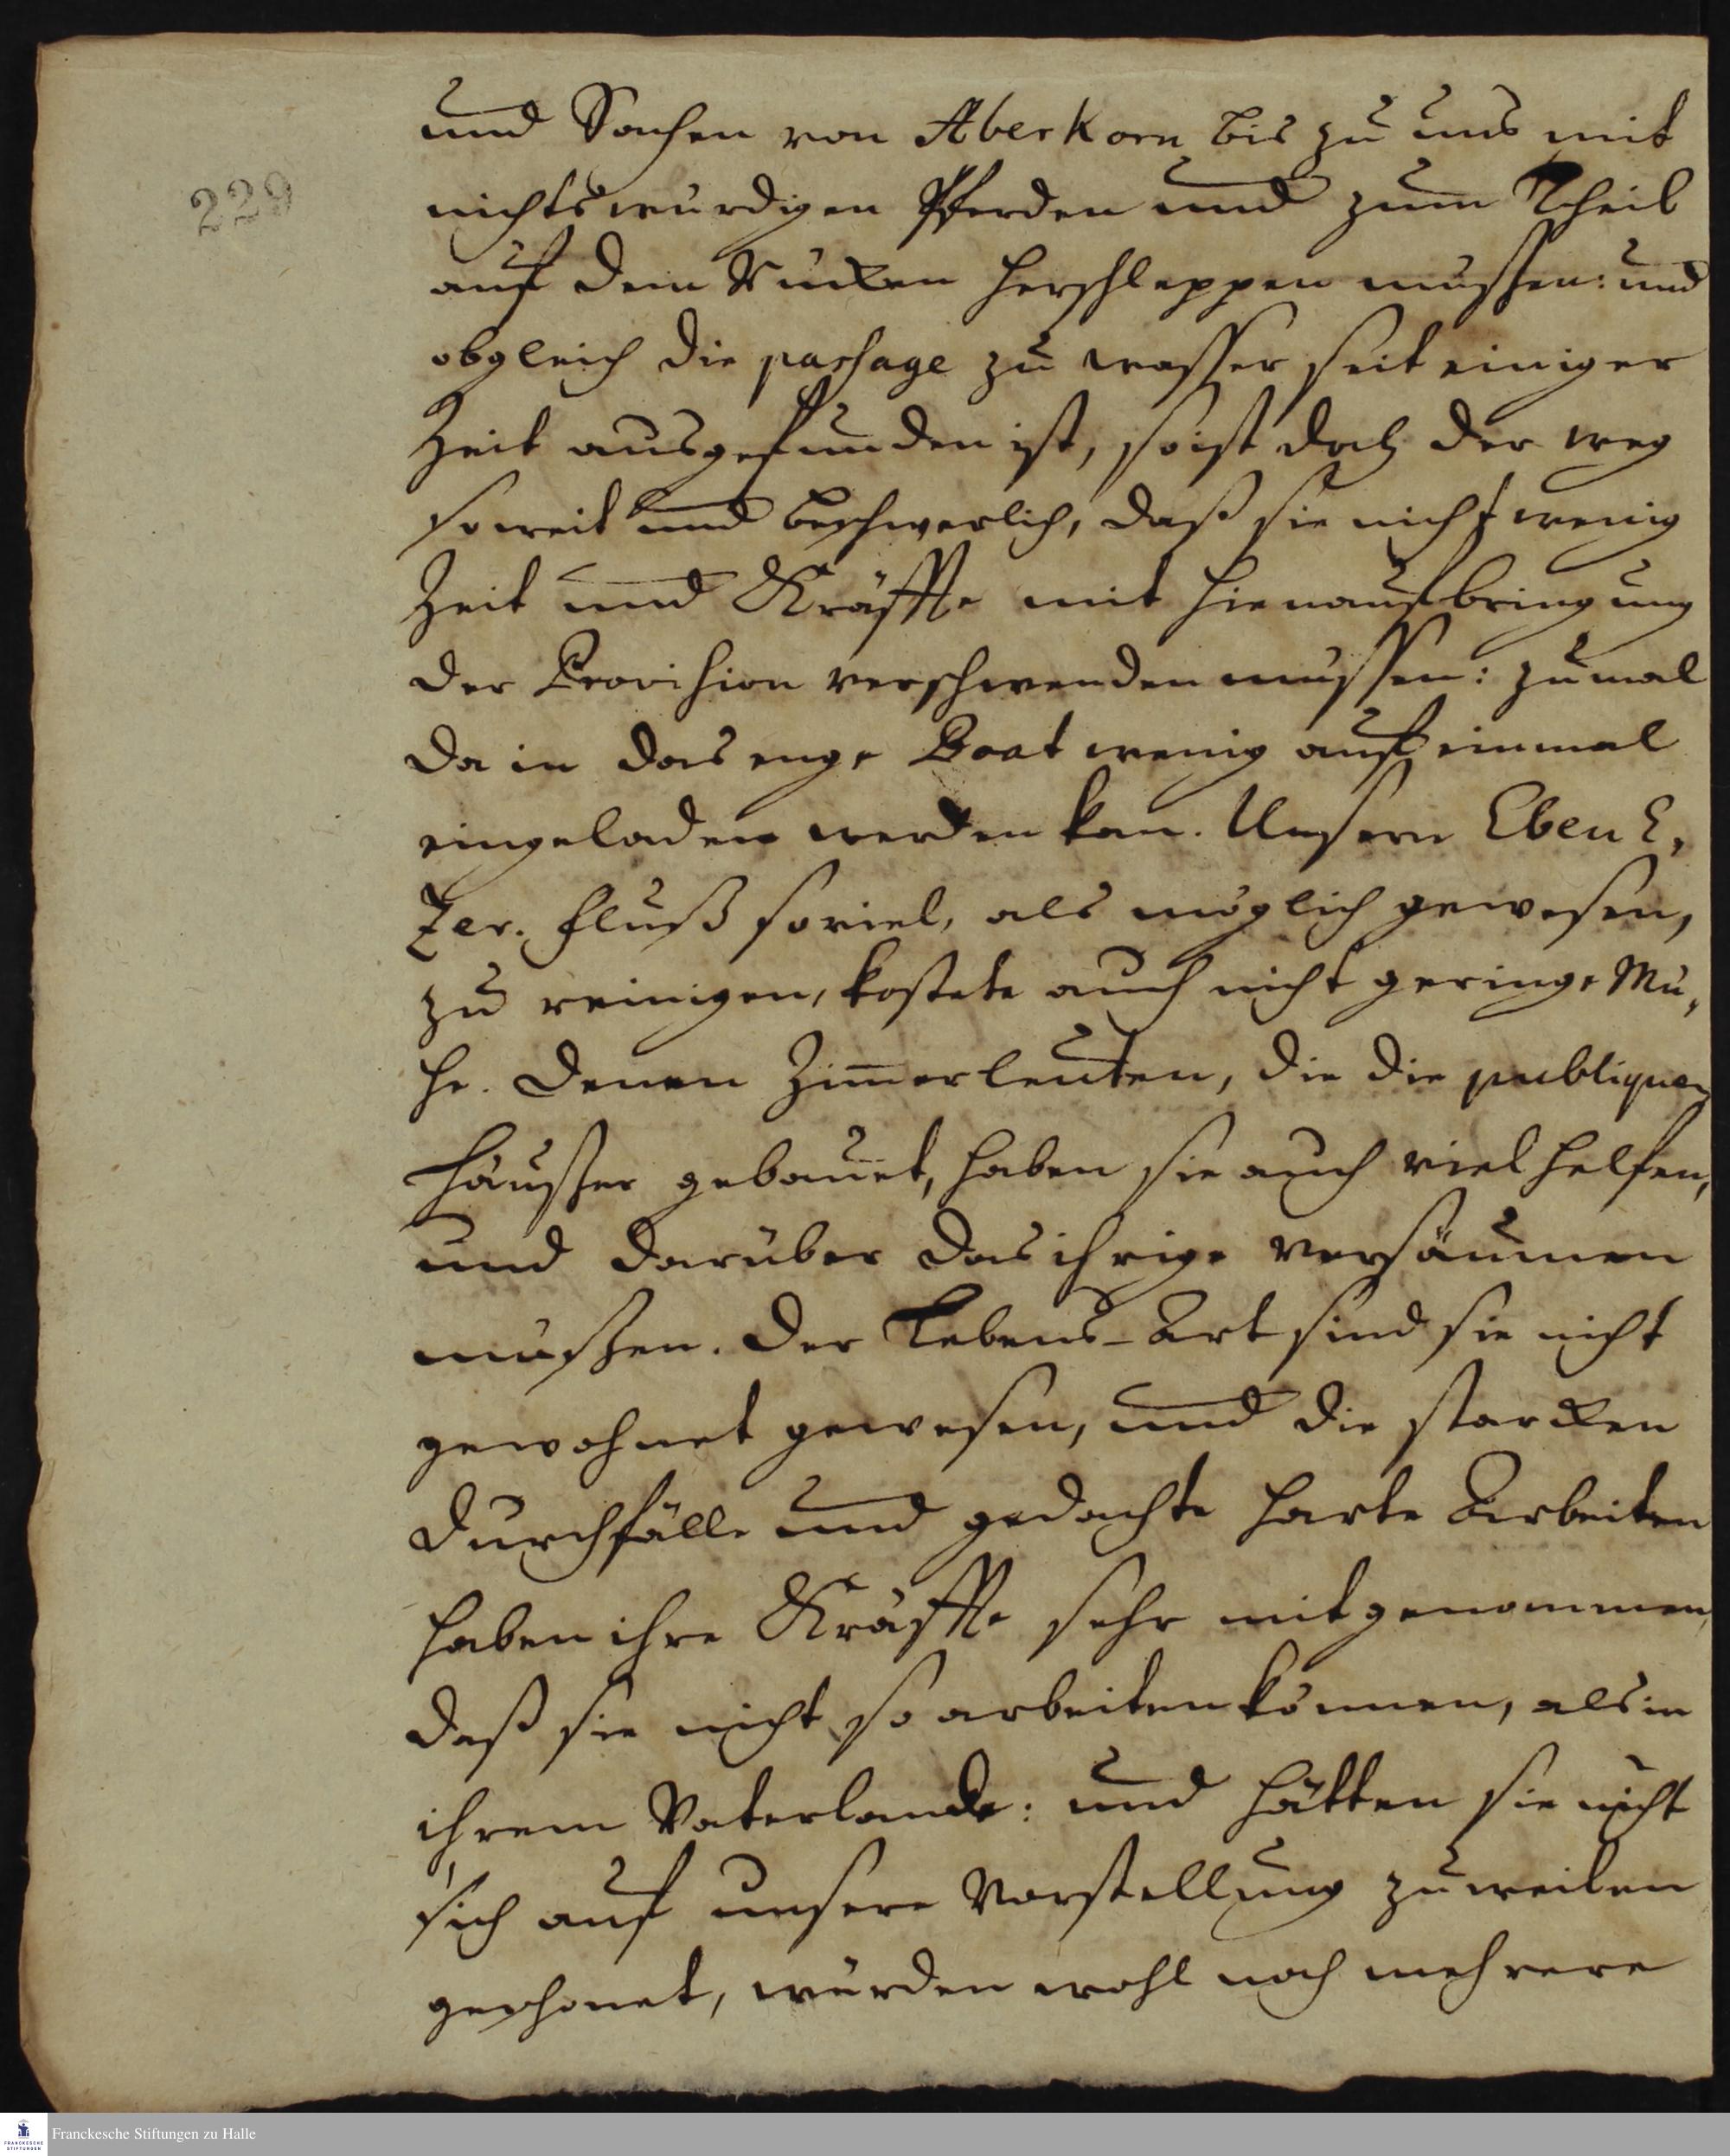 229
und Sachen von Aberkorn bis zu uns mit
nichtswürdigen Pferden und zum Theil
auf dem Rücken herschleppen müssen: und
obgleich die passage zu wasser seit einiger
Zeit ausgefunden ist, so ist doch der weg
so weit und beschwerlich, daß sie nicht wenig
Zeit und Kräffte mit hienaufbringung
der Provision verschwenden müssen: zumal
da in das enge Boat wenig auf einmal
eingeladen werden kan. Unsern Ebene,
Zer. Fluß soviel, als möglich gewesen,
zu reinigen, kostete auch nicht geringe Mü,
he. Denen Zimerleuten, die die publiquen
Häusser gebauet, haben sie auch viel helfen,
und darüber das ihrige versäumen
müssen. Der Lebens-Art sind sie nicht
gewohnet gewesen, und die starcken
Durchfälle und gedachte harte Arbeiten
haben ihre Kräffte sehr mitgenommen,
daß sie nicht so arbeiten können, als in
ihrem Vaterlande: und hätten sie nicht
sich auf unsere Vorstellung zuweilen
geschonet, würden wohl noch mehrere
Franckesche Stiftungen zu Halle
FRANCKESCHE
STIFTUNGEN